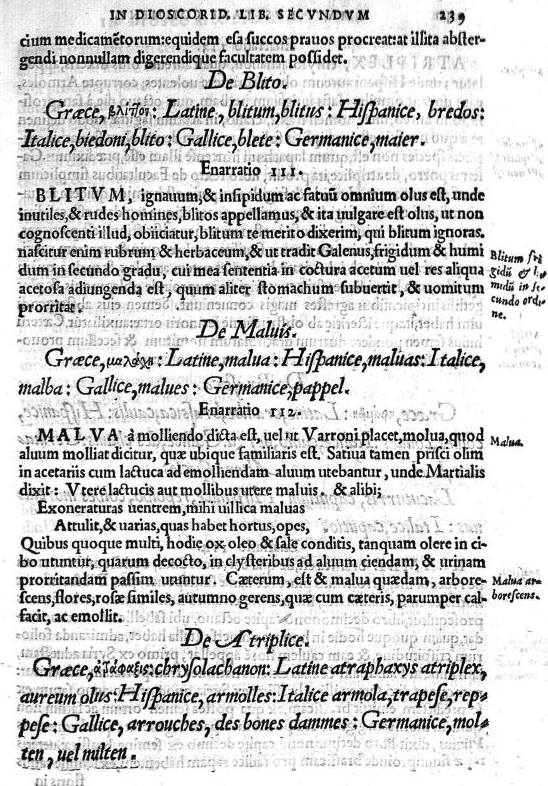 IN DIOSCORID. LIB. SECVNDVM 239
cium medicamẽtorum: equidem esa succos prauos procreat: at illita abster-
gendi nonnullam digerendique facultatem possidet.
De Blito.
Græce, βλίτον: Latine, blitum, blitus: Hispanice, bredos:
Italice, biedoni, blito: Gallice, blete: Germanice, maier.
Enarratio 111.
BLITVM, ignauum, & insipidum ac fatuũ omnium olus est, unde
inutiles, & rudes homines, blitos appellamus, & ita uulgare est olus, ut non
cognoscenti illud, obiiciatur, blitum te merito dixerim, qui blitum ignoras.
nascitur enim rubrum & herbaceum, & ut tradit Galenus, frigidum & humi
dum in secundo gradu, cui mea sententia in coctura acetum uel res aliqua
acetosa adiungenda est, quum aliter stomachum subuertit, & uomitum
prorritat.
Blitum fri
gidũ & hu
midũ in se
cundo ordi
ne.
De Maluis.
Græce, μαλάχη: Latine, malua: Hispanice, maluas: Italice,
malba: Gallice, malues: Germanice, pappel.
Enarratio 112.
MALVA à molliendo dicta est, uel ut Varroni placet, molua, quod
aluum molliat dicitur, quæ ubique familiaris est. Satiua tamen prisci olim
in acetariis cum lactuca ad emolliendam aluum utebantur, unde Martialis
dixit: Vtere lactucis aut mollibus utere maluis. & alibi;
Exoneraturas uentrem, mihi uillica maluas
Attulit, & uarias, quas habet hortus, opes,
Quibus quoque multi, hodie ex oleo & sale conditis, tanquam olere in ci-
bo utuntur, quarum decocto, in clysteribus ad aluum ciendam, & urinam
prorritandam passim utuntur. Cæterum, est & malua quædam, arbore-
scens, flores, rosæ similes, autumno gerens, quæ cum cæteris, parumper cal-
facit, ac emollit.
Malua.
Malua ar-
borescens.
De Atriplice.
Græce, ἀτράφαξις: chrysolachanon: Latine atraphaxys atriplex,
aureum olus: Hispanice, armolles: Italice armola, trapese, rep-
pese: Gallice, arrouches, des bones dammes: Germanice, mol-
ten, uel milten.